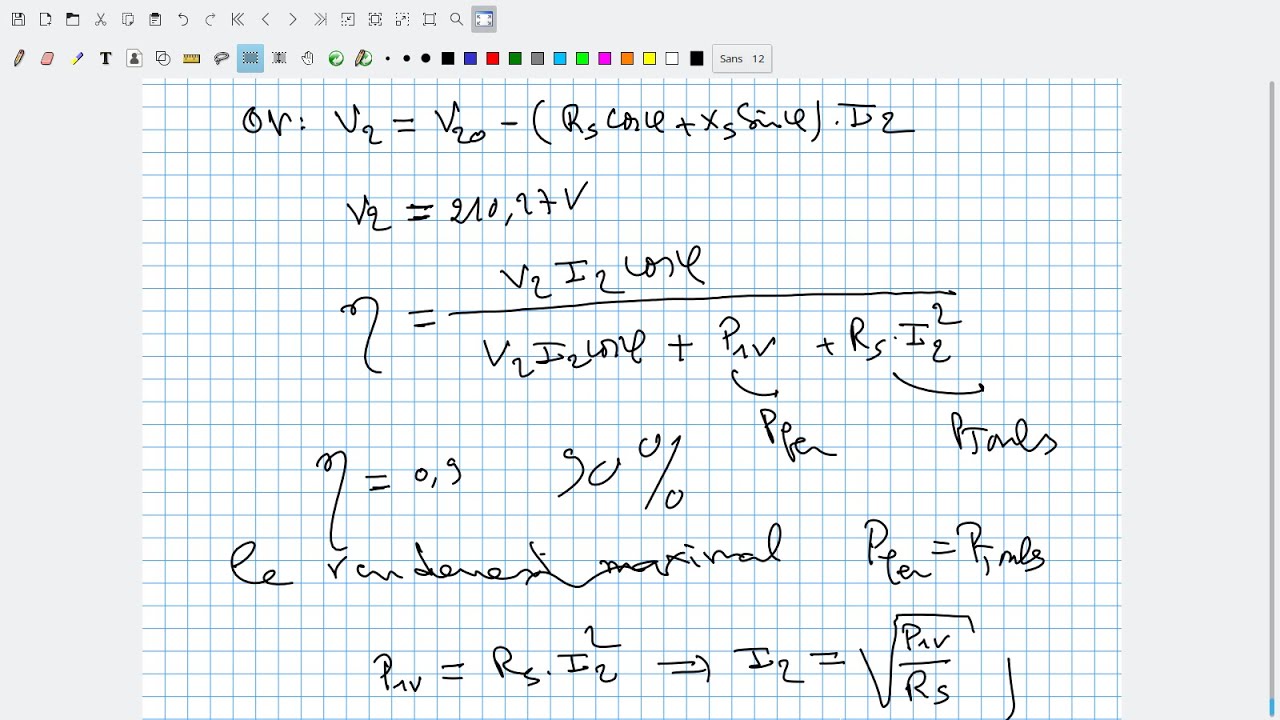 T
Sans 12
or: V₂ = V₂₀ - (Rs cosφ + Xs sinφ).I2
V₂ = 210,27V
V₂I₂cosφ
η =
V₂I₂cosφ + P₁v + Rs.I₂²
Pfer PJouls
η = 0,9 90%
le rendement maximal Pfer = PJouls
P₁v = Rs.I₂² ⇒ I₂ = √(P₁v/Rs)